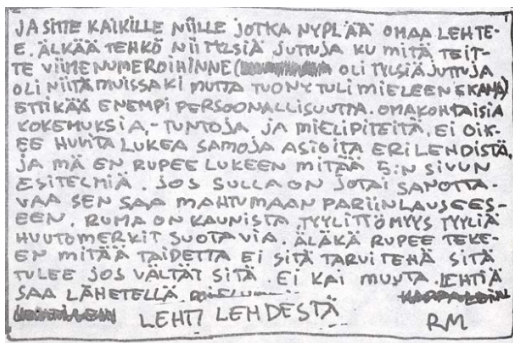 JA SITTE KAIKILLE NIILLE JOTKA NYPLÄÄ OMAA LEHTE-
E. ÄLKÄÄ TEHKÖ NIIN TYLSIÄ JUTTUJA KU MITÄ TEIT-
TE VIIME NUMEROIHINNE ( OLI TYLSIÄ JUTTUJA
OLI NIITÄ MUISSAKI MUTTA TUO NY TULI MIELEEN EKANA)
ETTIKÄÄ ENEMPI PERSOONALLISUUTTA. OMAKOHTAISIA
KOKEMUKSIA,-TUNTOJA, JA MIELIPITEITÄ. EI OIK-
EE HUVITA LUKEA SAMOJA ASIOITA ERI LEHDISTÄ,
JA MÄ EN RUPEE LUKEEN MITÄÄ 5:N SIVUN
ESITELMIÄ. JOS SULLA ON JOTAI SANOTTA-
VAA SEN SAA MAHTUMAAN PARIIN LAUSEES-
EEN. RUMA ON KAUNISTA, TYYLITTÖMYYS TYYLIÄ
HUUTOMERKIT SUOTAVIA. ÄLÄKÄ RUPEE TEKE-
EN MITÄÄ TAIDETTA EI SITÄ TARVI TEHÄ SITÄ
TULEE JOS VÄLTÄT SITÄ. EI KAI MUUTA. LEHTIÄ
SAA LÄHETELLÄ.
LEHTI LEHDESTÄ
RM